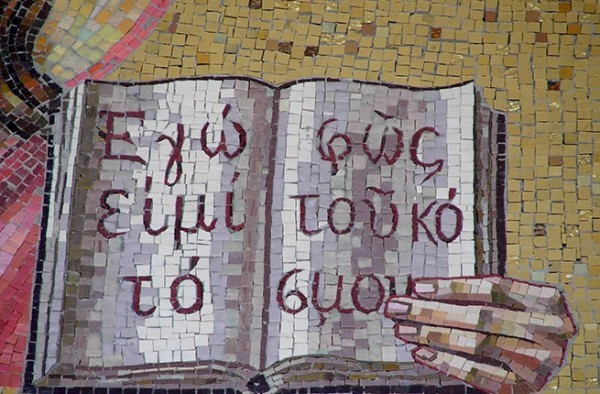 Εγώ
εἰμί
τό
φῶς
τοῦ κό
σμου